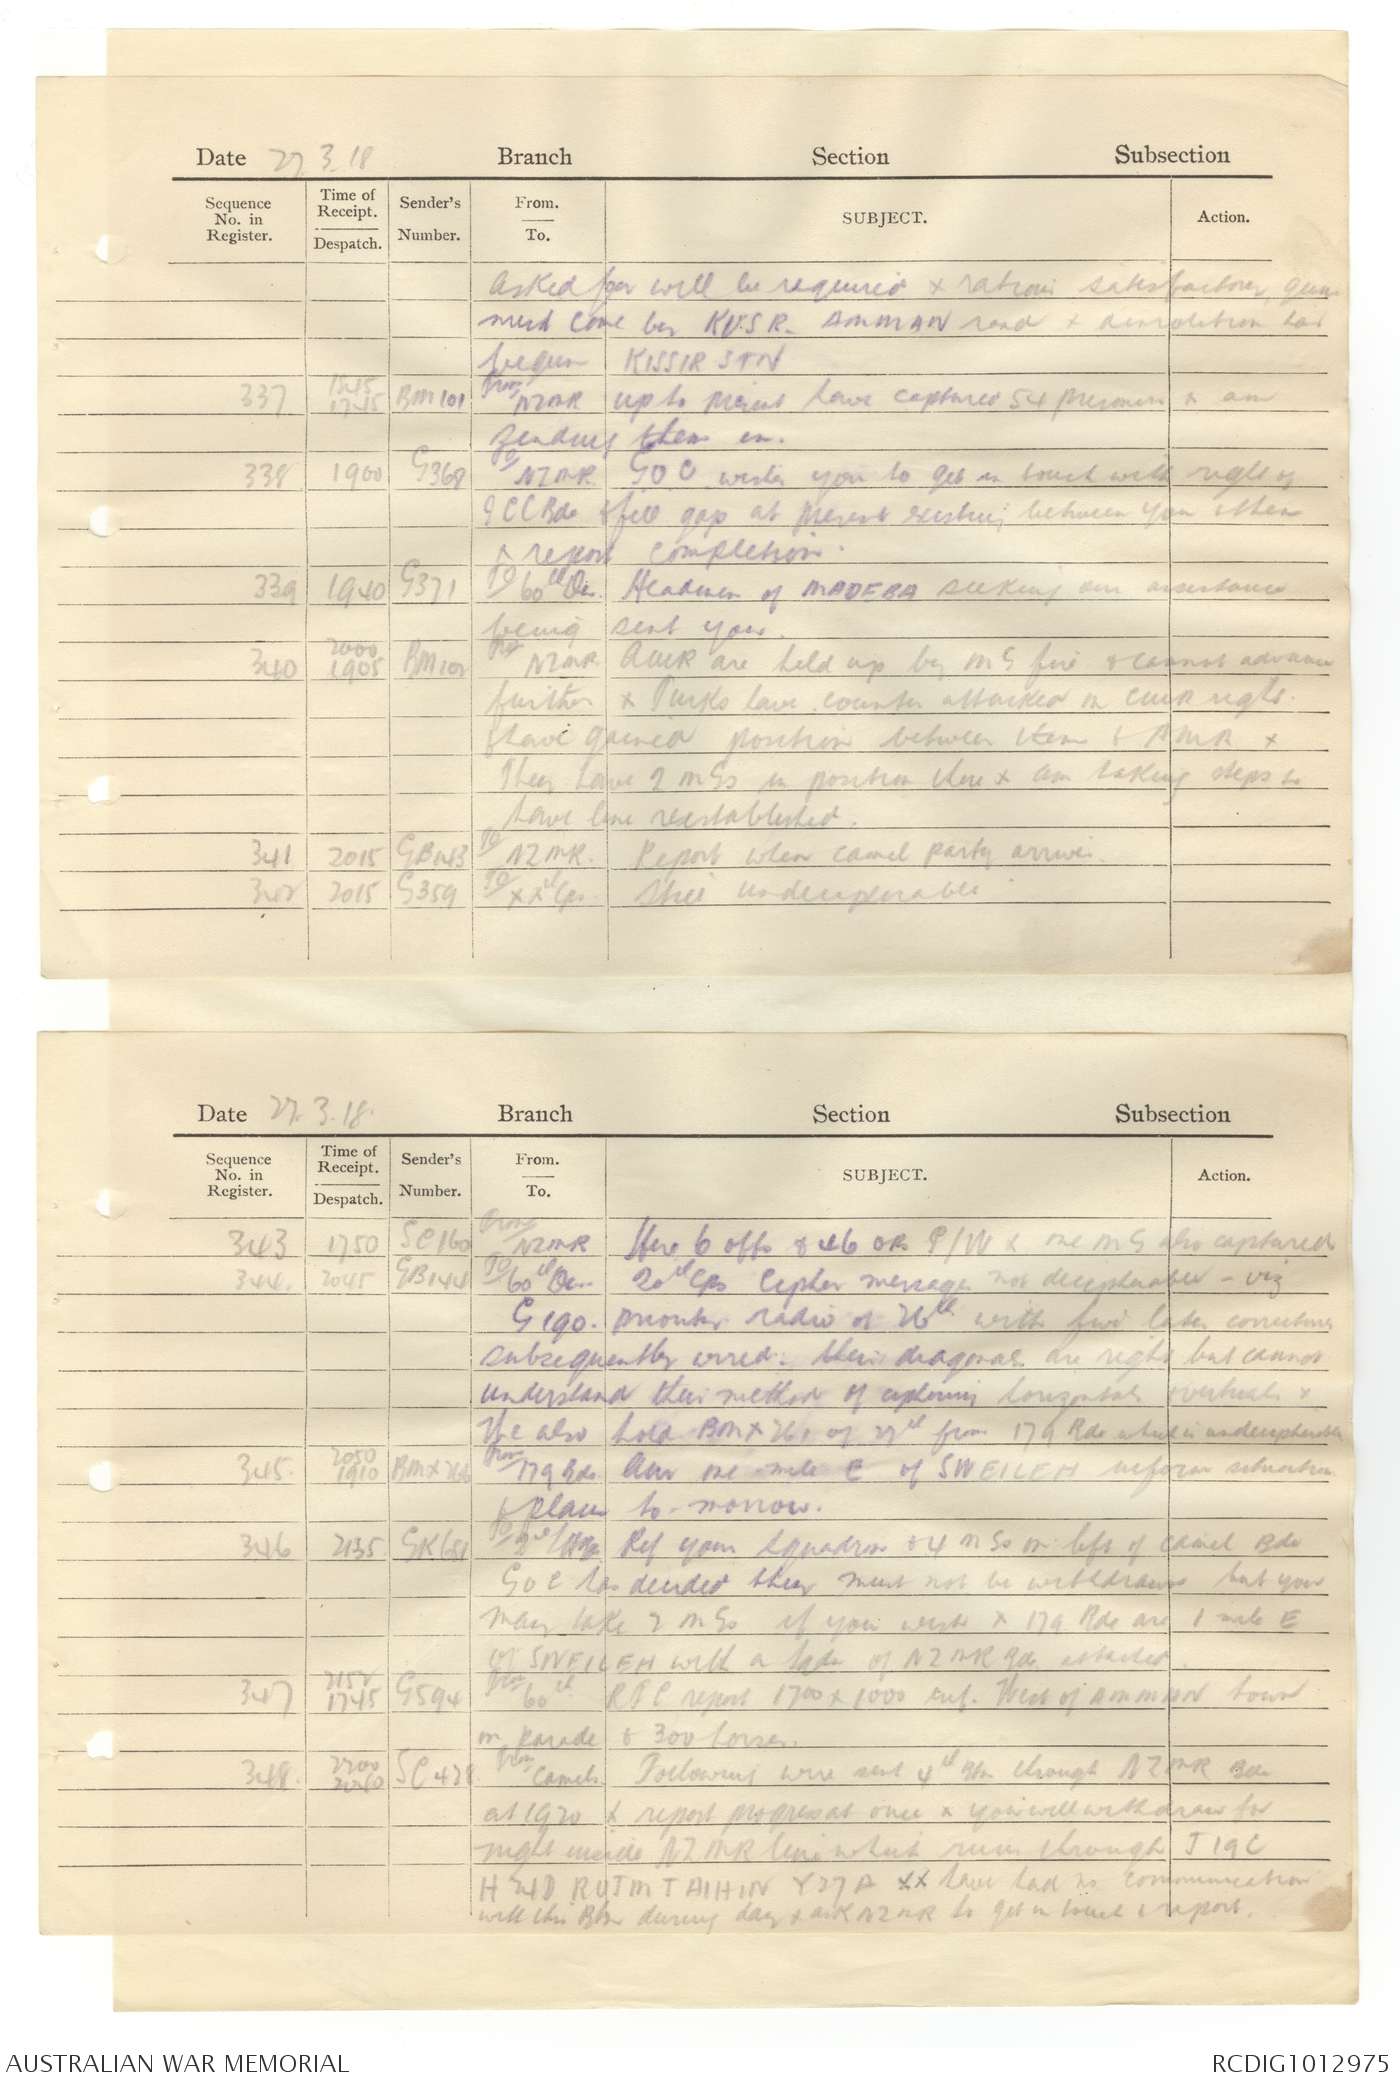 Date 27.3.18 Branch Section Subsection
Sequence No. in Register. Time of Receipt. Despatch. Sender's Number. From. To. SUBJECT. Action.
asked for will be required x rations satisfactory, guns
must come by KUSR - AMMAN road x demolition has
begun KISSIR STN
337 1545 1745 BM101 From NZMR up to present have captured 54 prisoners x am
sending them in.
338 1900 G368 To NZMR GOC wishes you to get in touch with right of
ICC Bde & fill gap at present existing between you & them
& report completion.
339 1940 G371 To 60th Div. Headmen of MADEBA seeking our assistance
being sent you.
340 2000 1905 BM102 From NZMR AMR are held up by MG fire & cannot advance
further x Turks have counter attacked on CMR right.
& have gained position between them & AMR x
They have 2 MGs in position there x am taking steps to
have line reestablished.
341 2015 GB143 To NZMR. Report when camel party arrives.
342 2015 G359 To XXth Cps. Still undecipherable
Date 27.3.18. Branch Section Subsection
Sequence No. in Register. Time of Receipt. Despatch. Sender's Number. From. To. SUBJECT. Action.
343 1750 SC160 From NZMR Have 6 offs & 46 ORs P/W x one MG also captured
344. 2045 GB144 To 60th Div. 20th Cps Cipher message not decipherable - viz
G190. priority radio of 26th with two later corrections
subsequently wired. their diagonals are right but cannot
understand their method of ciphering horizontals verticals x
We also hold BMX261 of 27th from 179 Bde which is undecipherable
345. 2050 1910 BMX266 From 179 Bde Am one mile E of SWEILEH inform situation
& plans to-morrow.
346 2135 GK651 To 2nd LH Bde Ref your squadron & 4 MGs on left of Camel Bde
GOC has decided they must not be withdrawn but you
may take 2 MGs if you wish x 179 Bde are 1 mile E
of SWEILEH with a Sqdn of NZMR Bde attached.
347 2152 1745 G594 From 60th RFC report 1700 x 1000 inf. West of AMMAN town
on parade & 300 horses.
348. 2200 2040 SC438 From Camels. Following wire sent 4th Btn through NZMR Bde
at 1920 x report progress at once x you will withdraw for
night inside NZMR line which runs through J19C
H24D RUJM TAIHIN Y27A xx have had no communication
with this Btn during day x ask NZMR to get in touch & report.
AUSTRALIAN WAR MEMORIAL RCDIG1012975